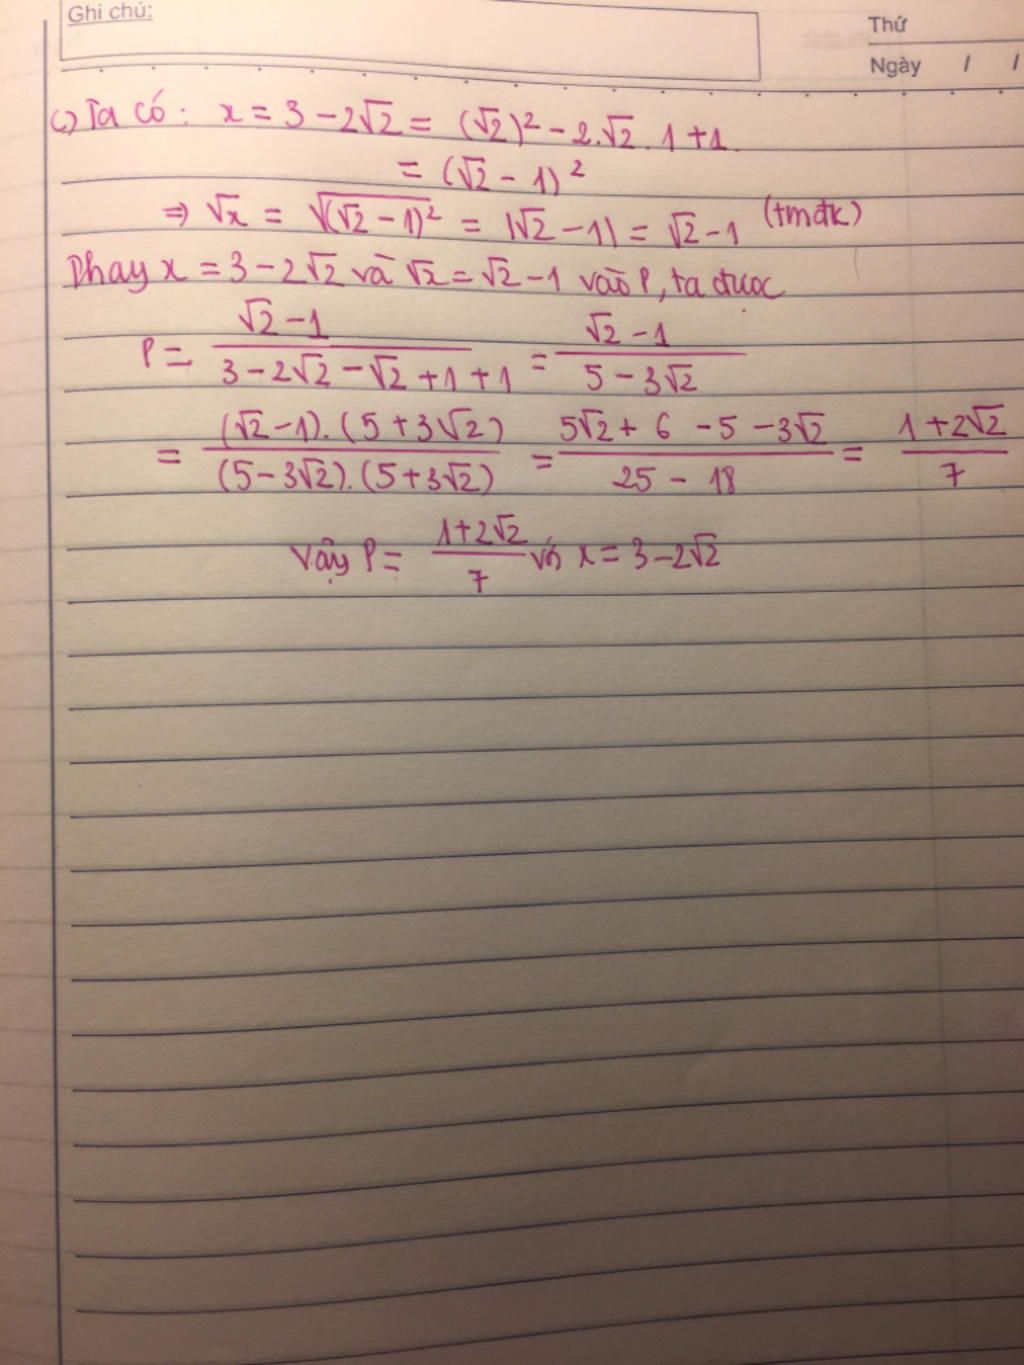 Ghi chú:
Thứ
Ngày / /
c) Ta có: x = 3 - 2√2 = (√2)² - 2.√2.1 + 1
= (√2 - 1)²
⇒ √x = √(√2 - 1)² = |√2 - 1| = √2 - 1 (tmđk)
Thay x = 3 - 2√2 và √x = √2 - 1 vào P, ta được
P = (√2 - 1)/(3 - 2√2 - √2 + 1 + 1) = (√2 - 1)/(5 - 3√2)
= ((√2 - 1).(5 + 3√2))/((5 - 3√2).(5 + 3√2)) = (5√2 + 6 - 5 - 3√2)/(25 - 18) = (1 + 2√2)/7
Vậy P = (1 + 2√2)/7 với x = 3 - 2√2